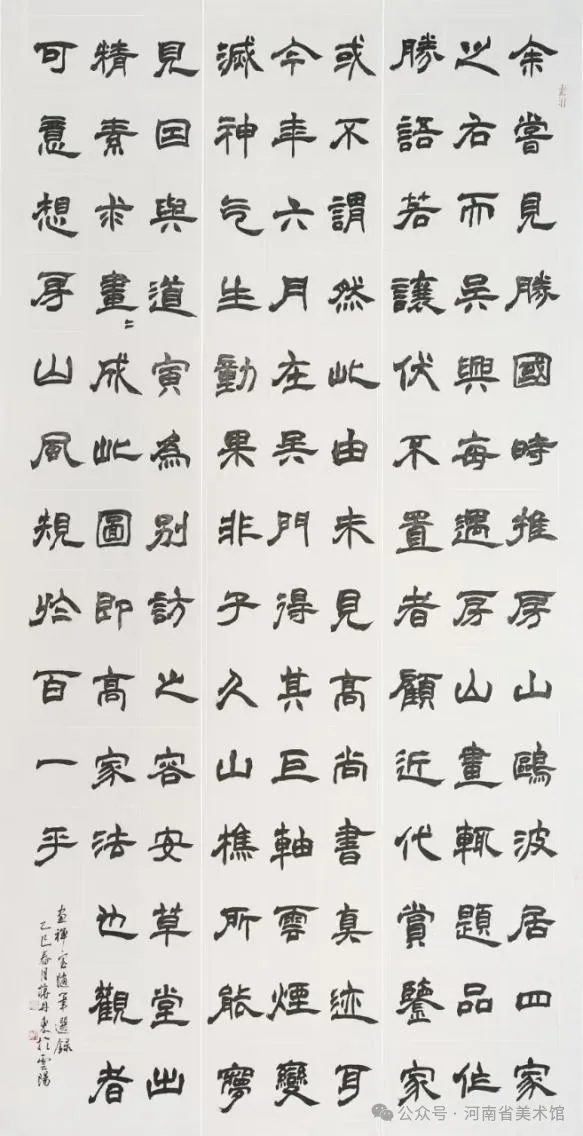 余嘗見勝國時推房山鷗波居四家
之右而吳興每遇房山畫輒題品作
勝語若讓伏不置者顧近代賞鑒家
或不謂然此由未見高尚書真迹耳
今年六月在吳門得其巨軸雲煙變
滅神气生動果非子久山樵所能夢
見因與道寅為別訪之容安草堂出
精素求畫〻成此圖即高家法也觀者
可意想房山風規於百一乎
画禪室隨筆選録
乙巳春月蔣丹東於雲陽
公众号·河南省美术馆